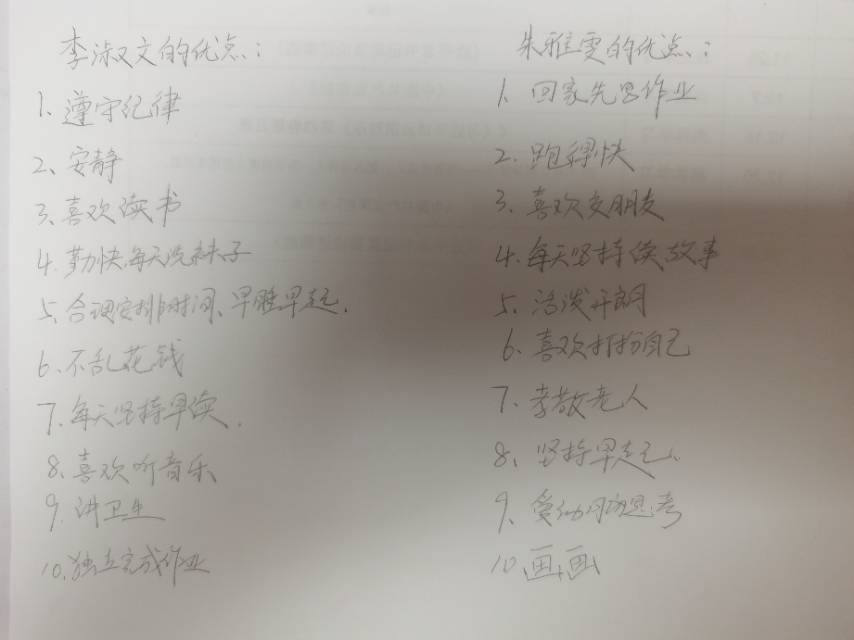 李淑文的优点：
1. 遵守纪律
2、安静
3、喜欢读书
4. 勤快，每天洗袜子
5、合理安排时间、早睡早起.
6、不乱花钱
7、每天坚持早读.
8、喜欢听音乐
9. 讲卫生
10、独立完成作业
朱雅雯的优点：
1、回家先写作业
2. 跑得快
3、喜欢交朋友
4、每天坚持读故事
5、活泼开朗
6、喜欢打扮自己
7、孝敬老人
8、坚持早起、
9、爱动脑思考
10、画画